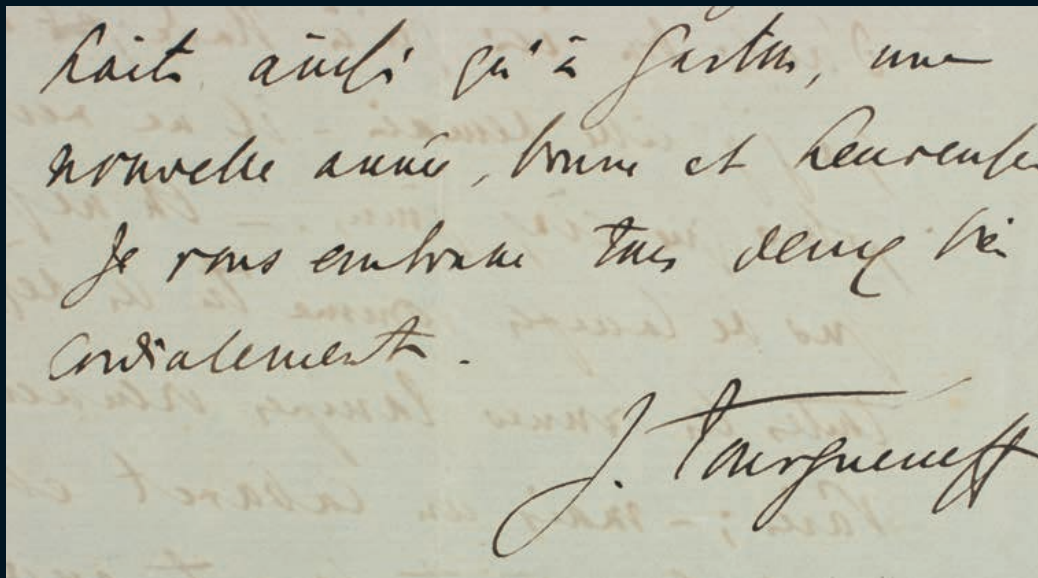 haite ainsi qu'à Gaston, une
nouvelle année, bonne et heureuse
Je vous embrasse tous deux bien
cordialement.
J. Tourgueneff